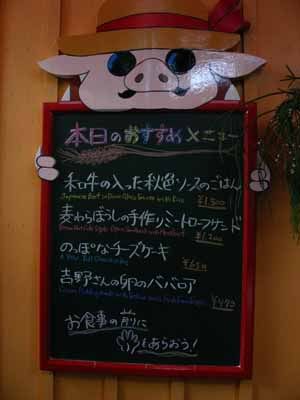 本日のおすすめメニュー
和牛の入った秋色ソースのごはん
Japanese Beef in Demi Glace Sauce with Rice
¥1,500
麦わらぼうしの手作りミートローフサンド
¥1,200
のっぽなチーズケーキ
¥650
吉野さんの卵のババロア
¥490
お食事の前に
手をあらおう!